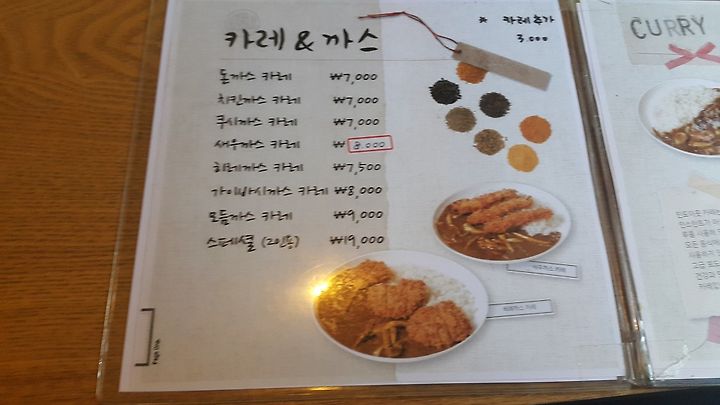 카레 & 까스
* 카레추가
3.000
돈까스 카레 ₩7,000
치킨까스 카레 ₩7,000
쿠시까스 카레 ₩7,000
새우까스 카레 ₩8.000
히레까스 카레 ₩7,500
가이바시까스 카레 ₩8,000
모듬까스 카레 ₩9,000
스페셜 (2인용) ₩19,000
새우까스 카레
히레까스 카레
Page One.
CURRY